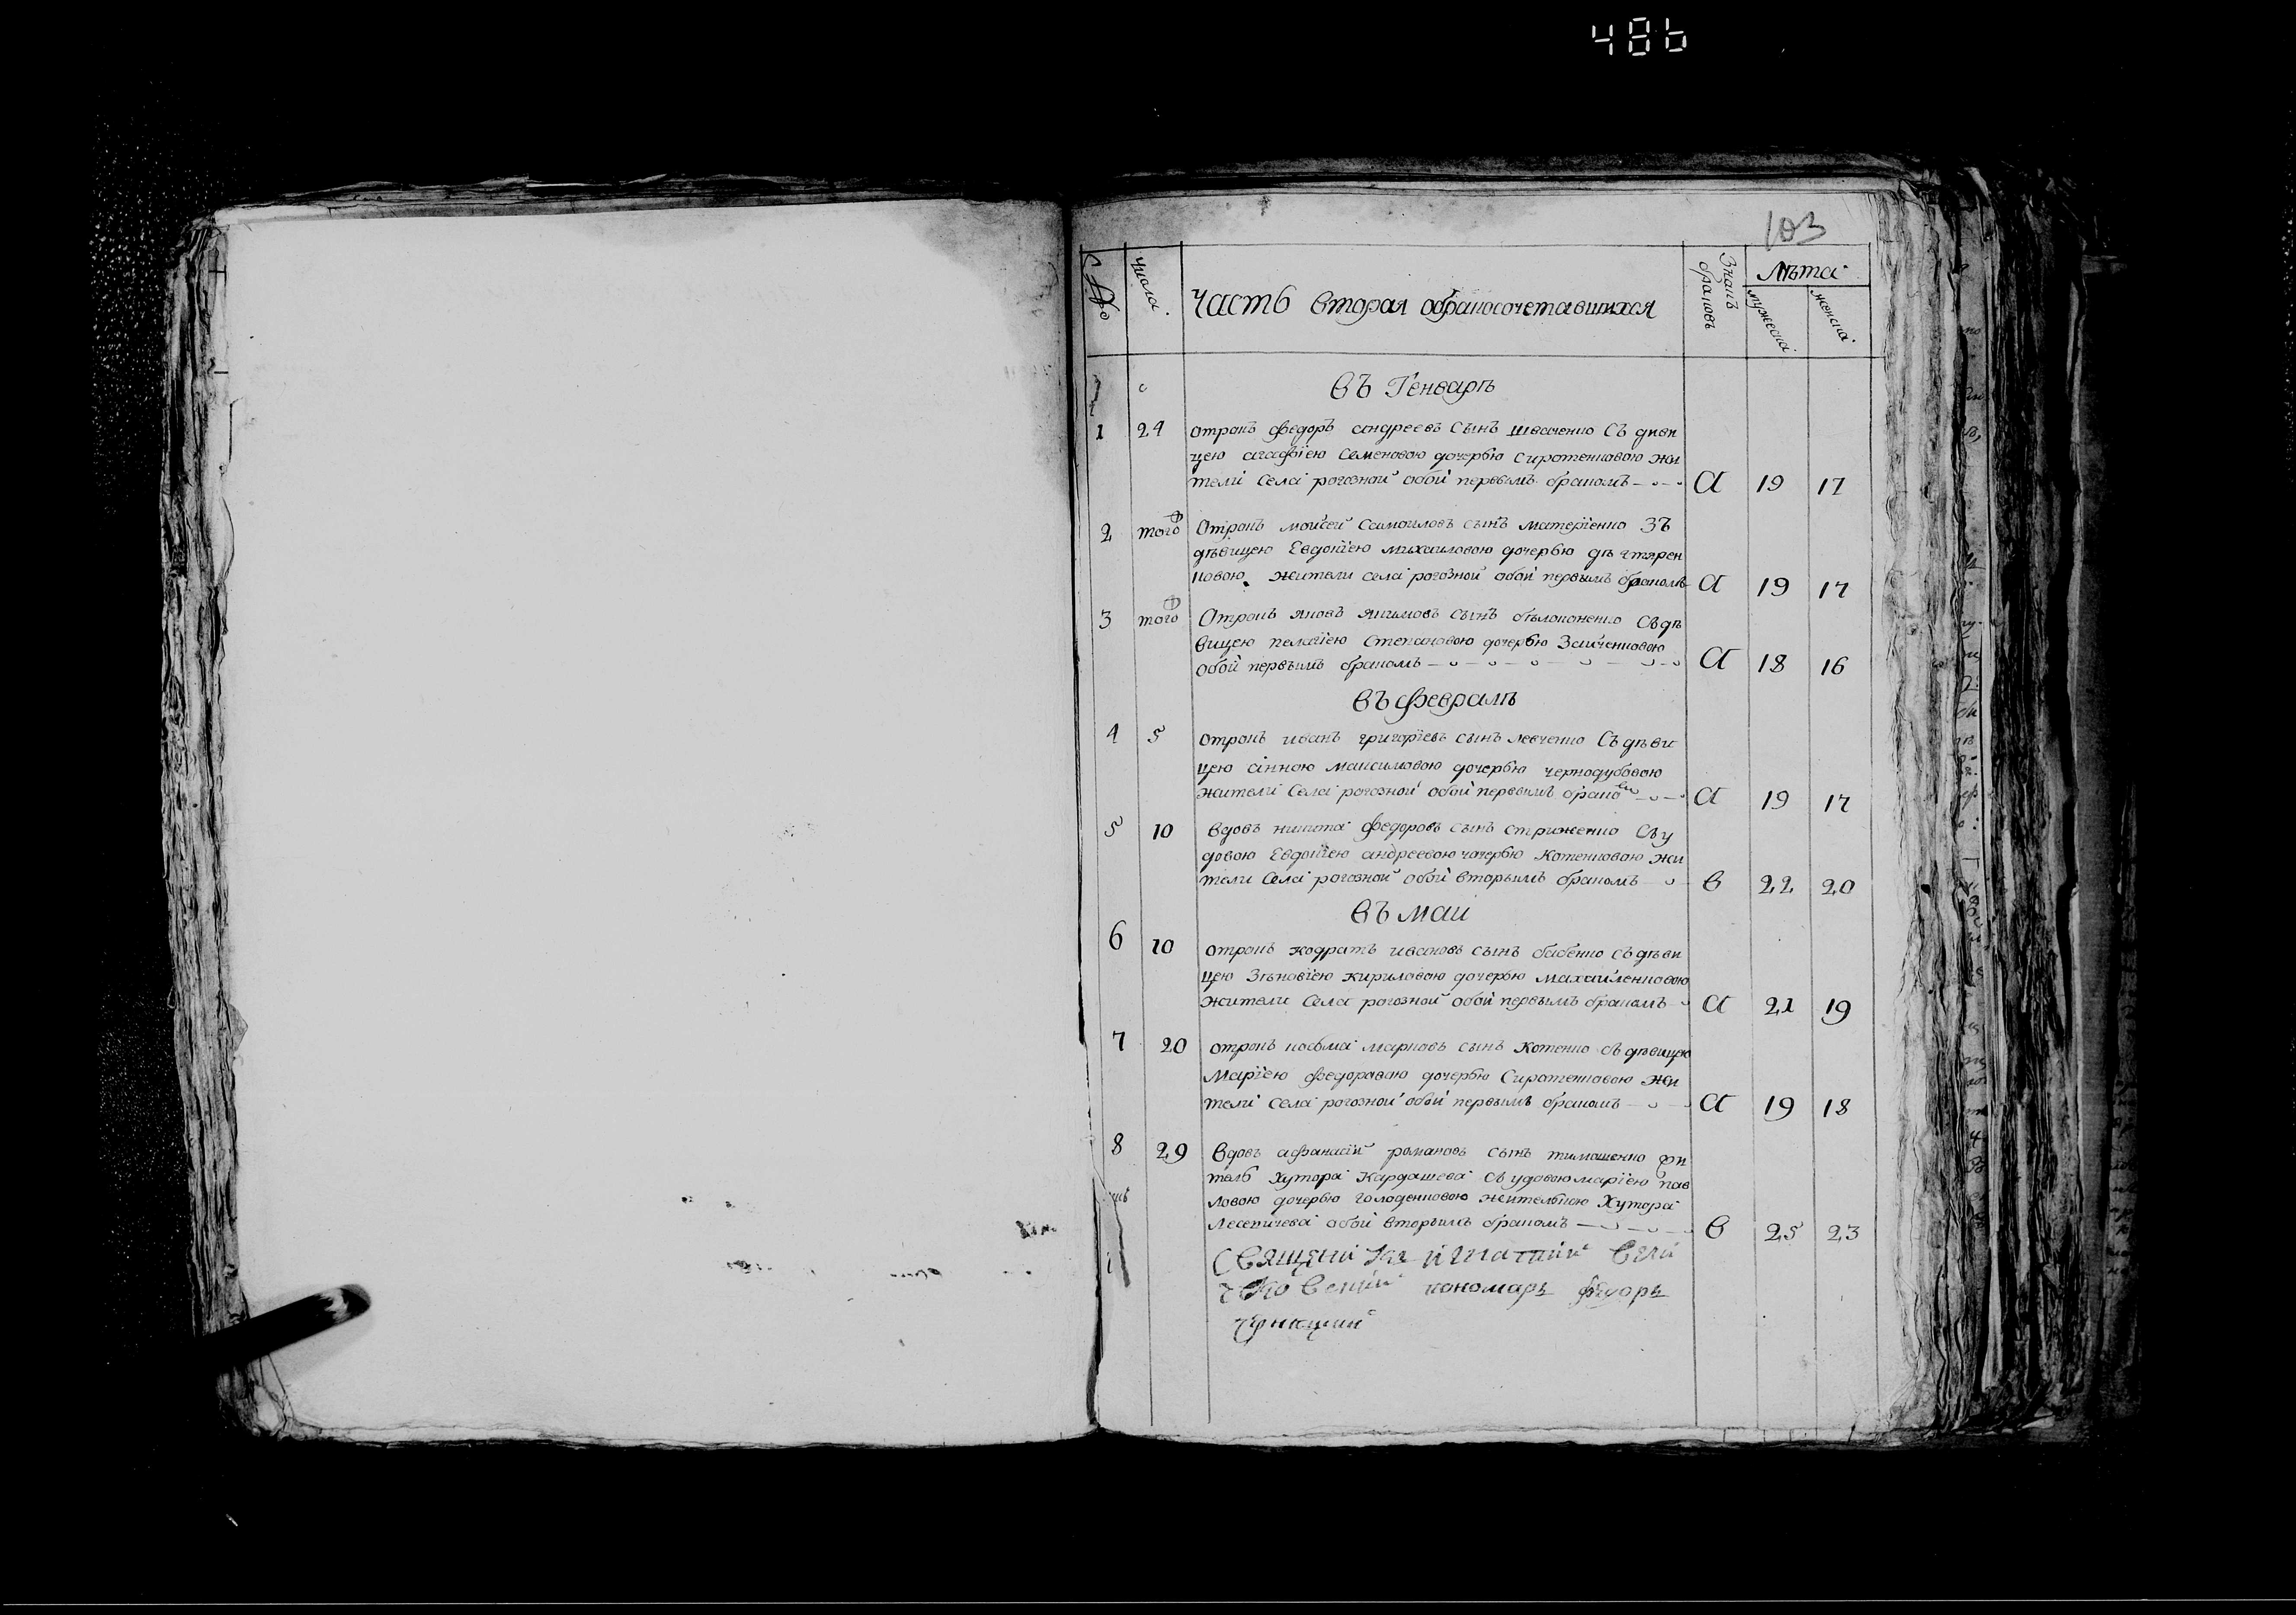 486
103
Числа
Часть вторая обракосочетавшихся
Знакъ браковъ
Лѣта
мужеска
женска
въ Генварѣ
1 24 отрокъ федоръ андреевъ сынъ шваченко съ дѣви
цею агафїею семеновою дочерью сиротенковою жи
тели села рогозной обои первымъ бракомъ а 19 17
2 того Отрокъ мойсей самоиловъ сынъ матерїенко зъ
дѣвицею Евдокїею михаиловою дочерью дѣгтярен
ковою жители села рогозной обои первымъ бракомъ а 19 17
3 того Отрокъ яковъ якимовъ сынъ бѣлоконенко съ дѣ
вицею пелагїею степановою дочерью Заиченковою
обои первымъ бракомъ а 18 16
въ февралѣ
4 5 отрокъ иванъ григорїевъ сынъ левченко съ дѣви
цею анною максимовою дочерью чернодубовою
жители села рогозной обои первымъ брако а 19 17
5 10 вдовъ никита федоровъ сынъ стриженко съ у
довою Евдокїею андреевою чочерью Котенковою жи
тели села рогозной обои вторымъ бракомъ в 22 20
въ маи
6 10 отрокъ кодратъ ивановъ сынъ бабенко съ дѣви
цею Зѣновїею кириловою дочерью махайленковою
жители села рогозной обои первымъ бракомъ а 21 19
7 20 отрокъ косьма марковъ сынъ Котенко съ дѣвицею
Марїею федоравою дочерью Сиротенковою жи
тели села рогозной обои первымъ бракомъ а 19 18
8 29 Вдовъ афанасїй романовъ сынъ тимошенко жи
тель Хутора Кардашева съ удовою марїею пав
ловою дочерью голоденковою жителькою Хутора
Лесевичева обои вторымъ бракомъ в 25 23
священикъ игнатїй вели
чковский пономарь федоръ